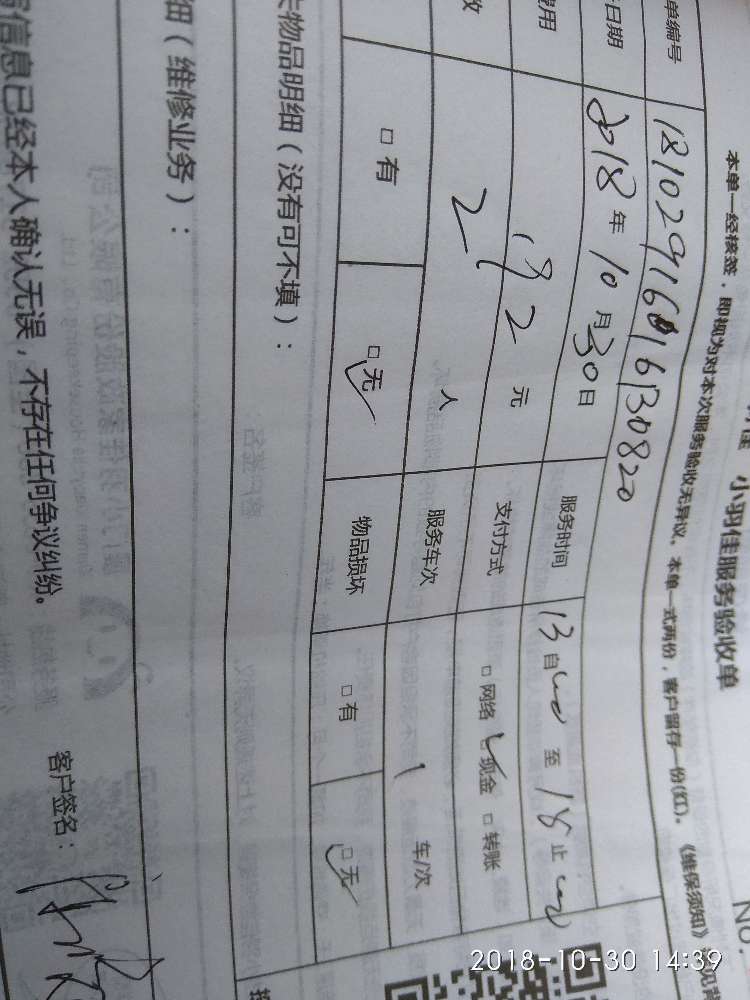 小羽佳服务验收单
本单一经核签，即视为对本次服务验收无异议。本单一式两份，客户留存一份(红)。《维保须知》
单编号 181029160161630820
日期 2018年10月30日 服务时间 13自 至18止
费用 元 支付方式 □网络 □现金 □转账
2人 服务车次 1 车/次
□有 □无 物品损坏 □有 □无
物品明细（没有可不填）：
细（维修业务）：
信息已经本人确认无误，不存在任何争议纠纷。 客户签名：
No.
2018-10-30 14:39